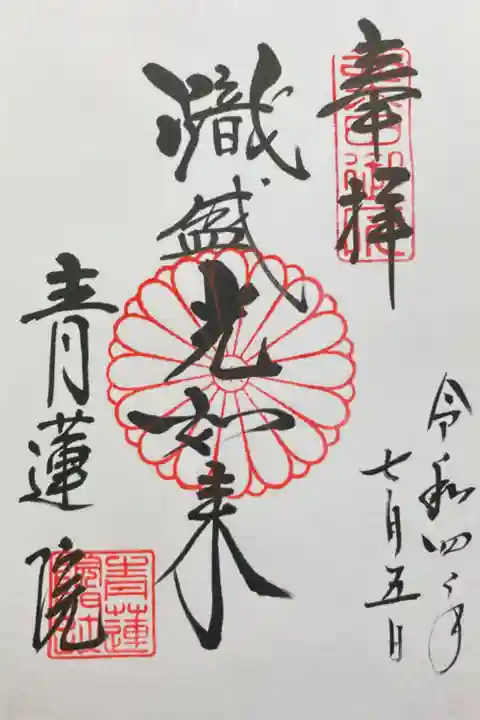 奉拝
令和四年
七月五日
熾盛光如来
青蓮院